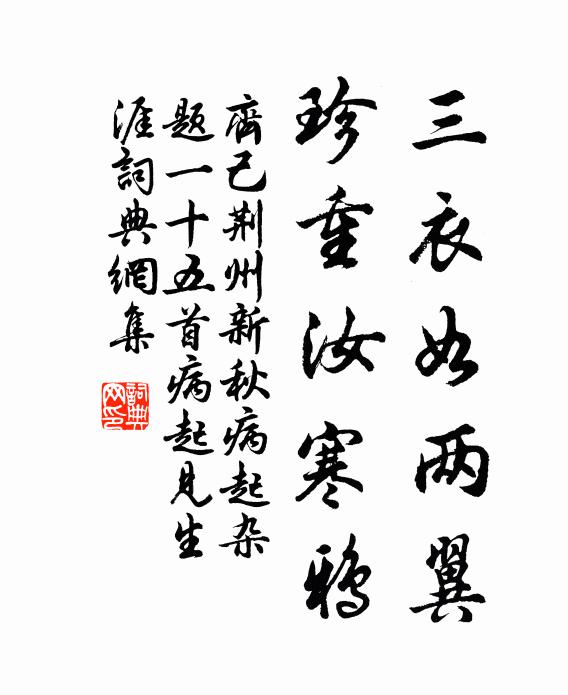 三衣如两翼
珍重汝寒鸦
齊己荆州新秋病起杂
题一十五首病起见生
涯詞典網集
詞典網印